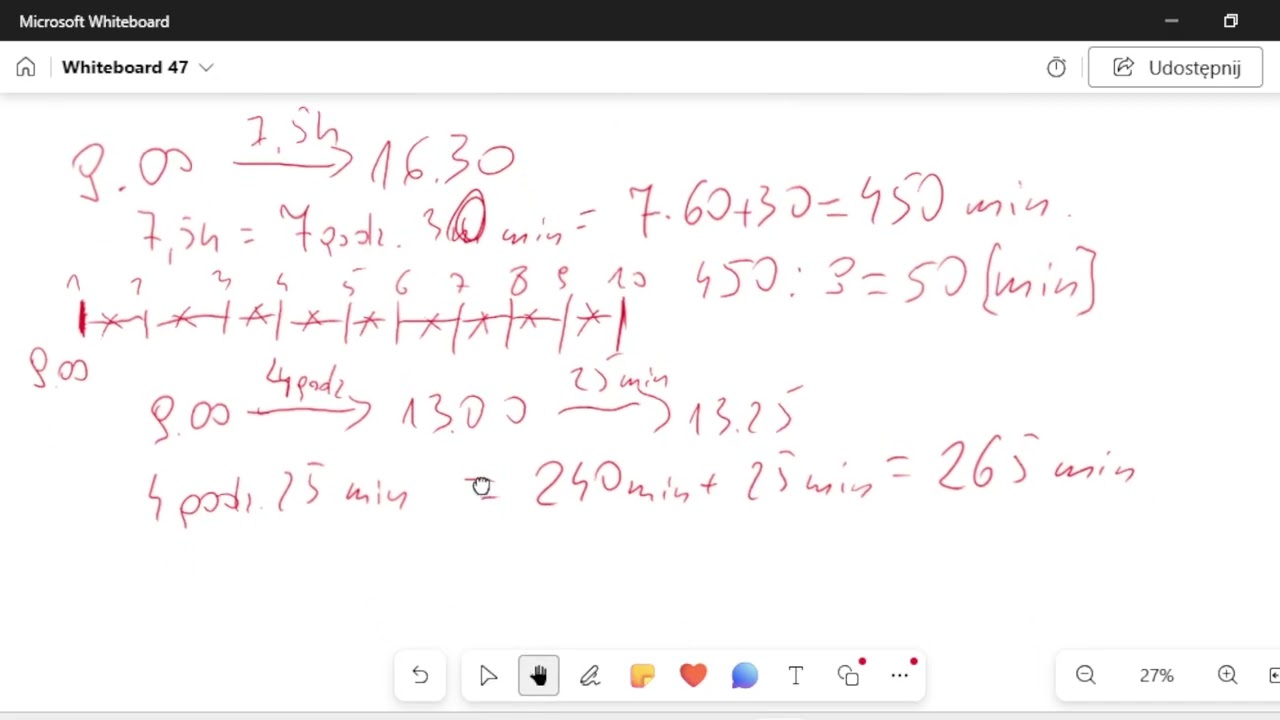 Microsoft Whiteboard
Whiteboard 47
Udostępnij
7,5h
9.00 → 16.30
7,5h = 7 godz. 30 min = 7.60+30=450 min.
1 2 3 4 5 6 7 8 9 10
450:9=50 [min]
9.00
4 godz 25 min
9.00 → 13.00 → 13.25
4 godz. 25 min = 240 min + 25 min = 265 min
T
27%